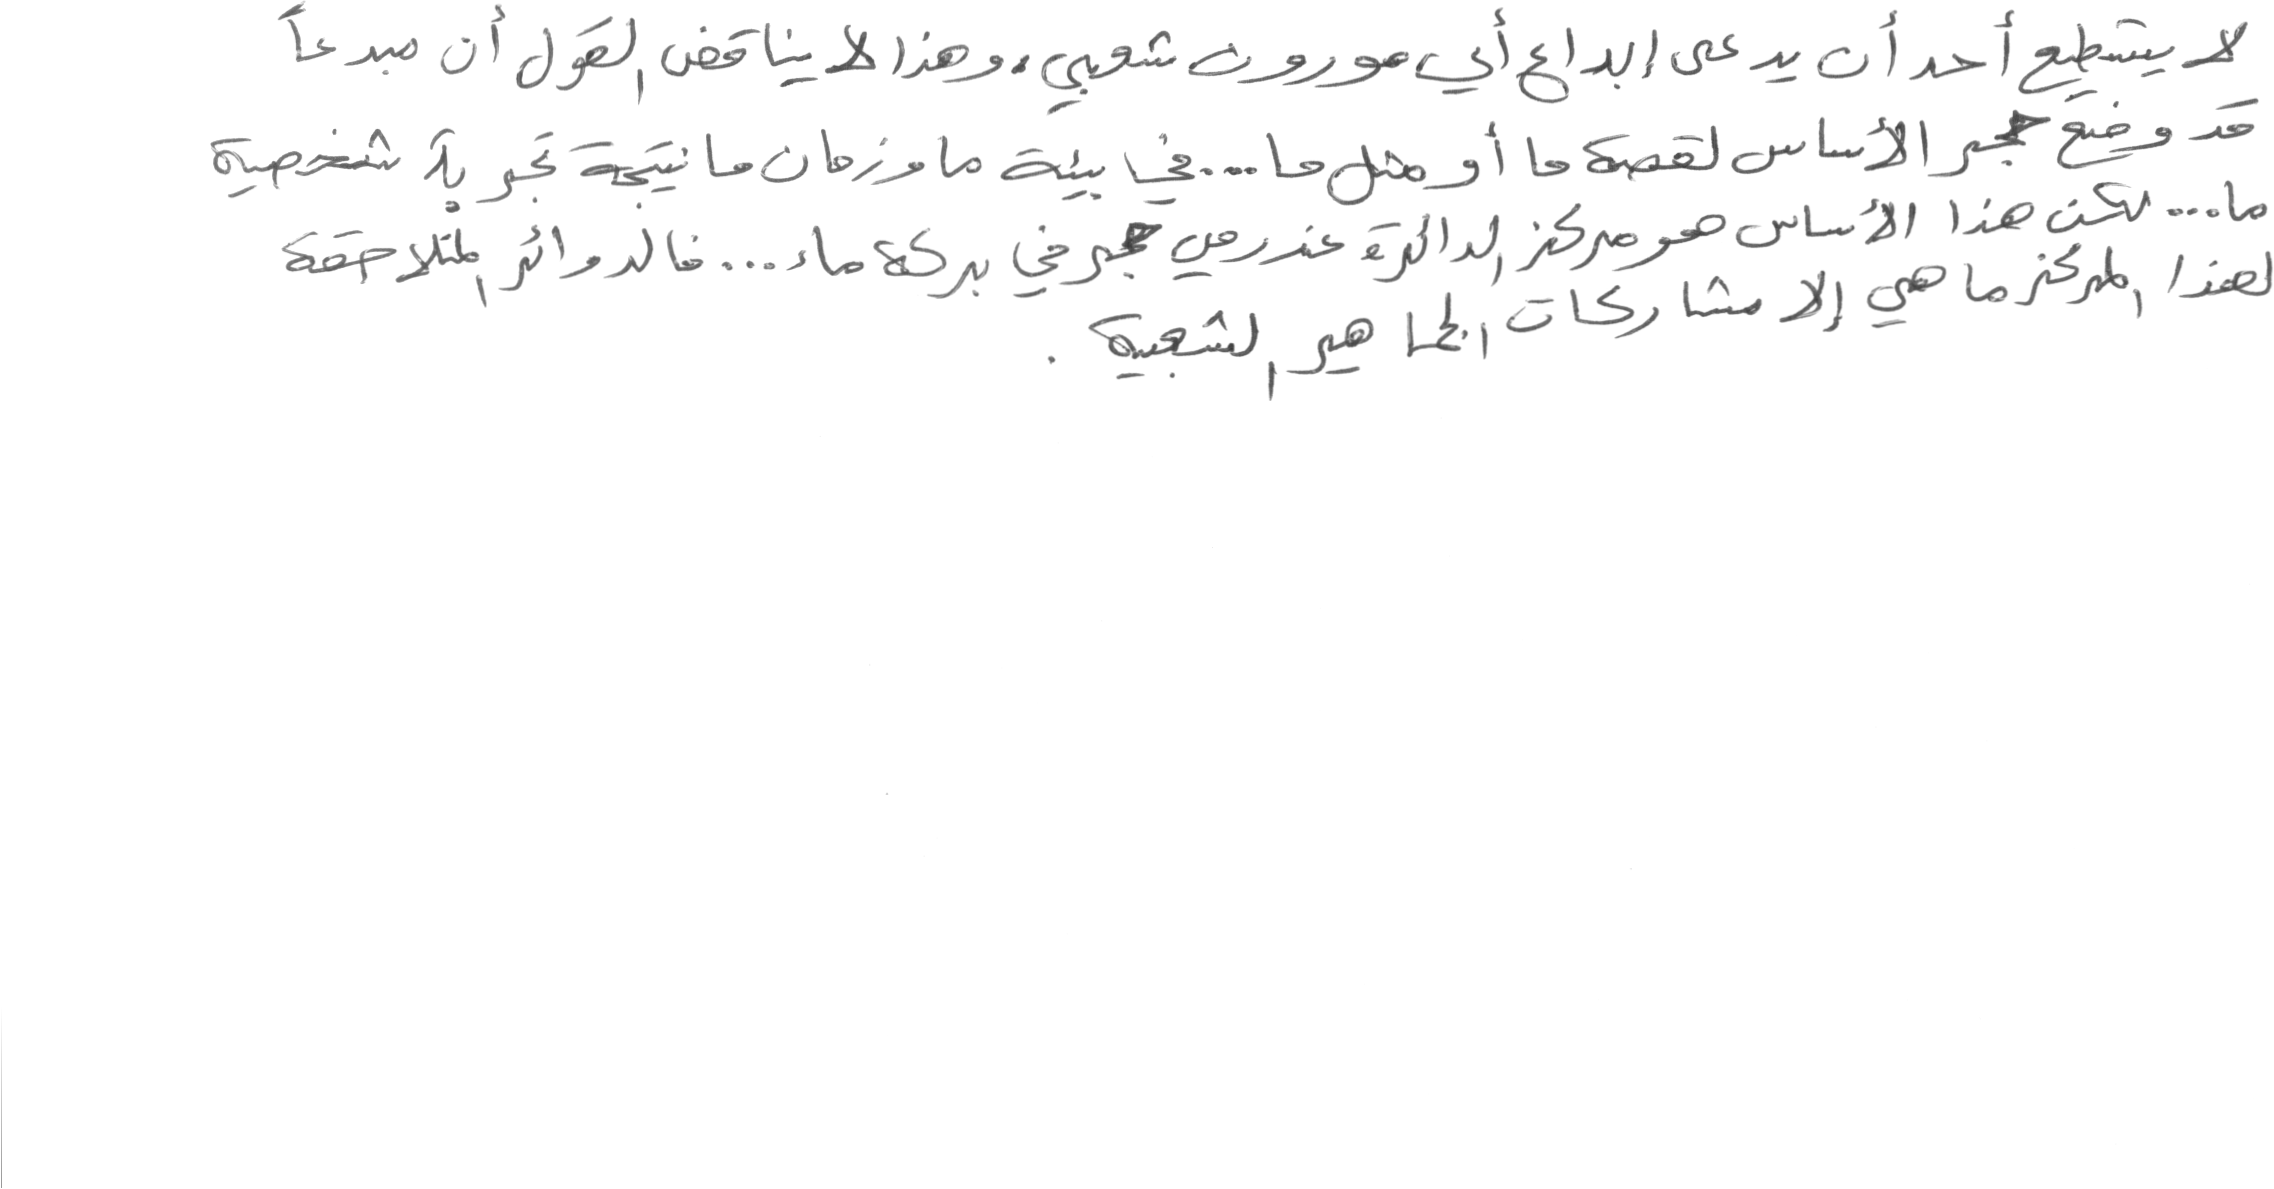 لا يستطيع أحد أن يدعى إبداع أي موروث شعبي، وهذا لا يناقض القول أن مبدعاً
قد وضع حجر الأساس لقصة ما أو مثل ما... في بيئة ما وزمان ما نتيجة تجربة شخصية
ما... لكن هذا الأساس هو مركز الدائرة عند رمي حجر في بركة ماء... فالدوائر المتلاحقة
لهذا المركز ما هي إلا مشاركات الجماهير الشعبية .